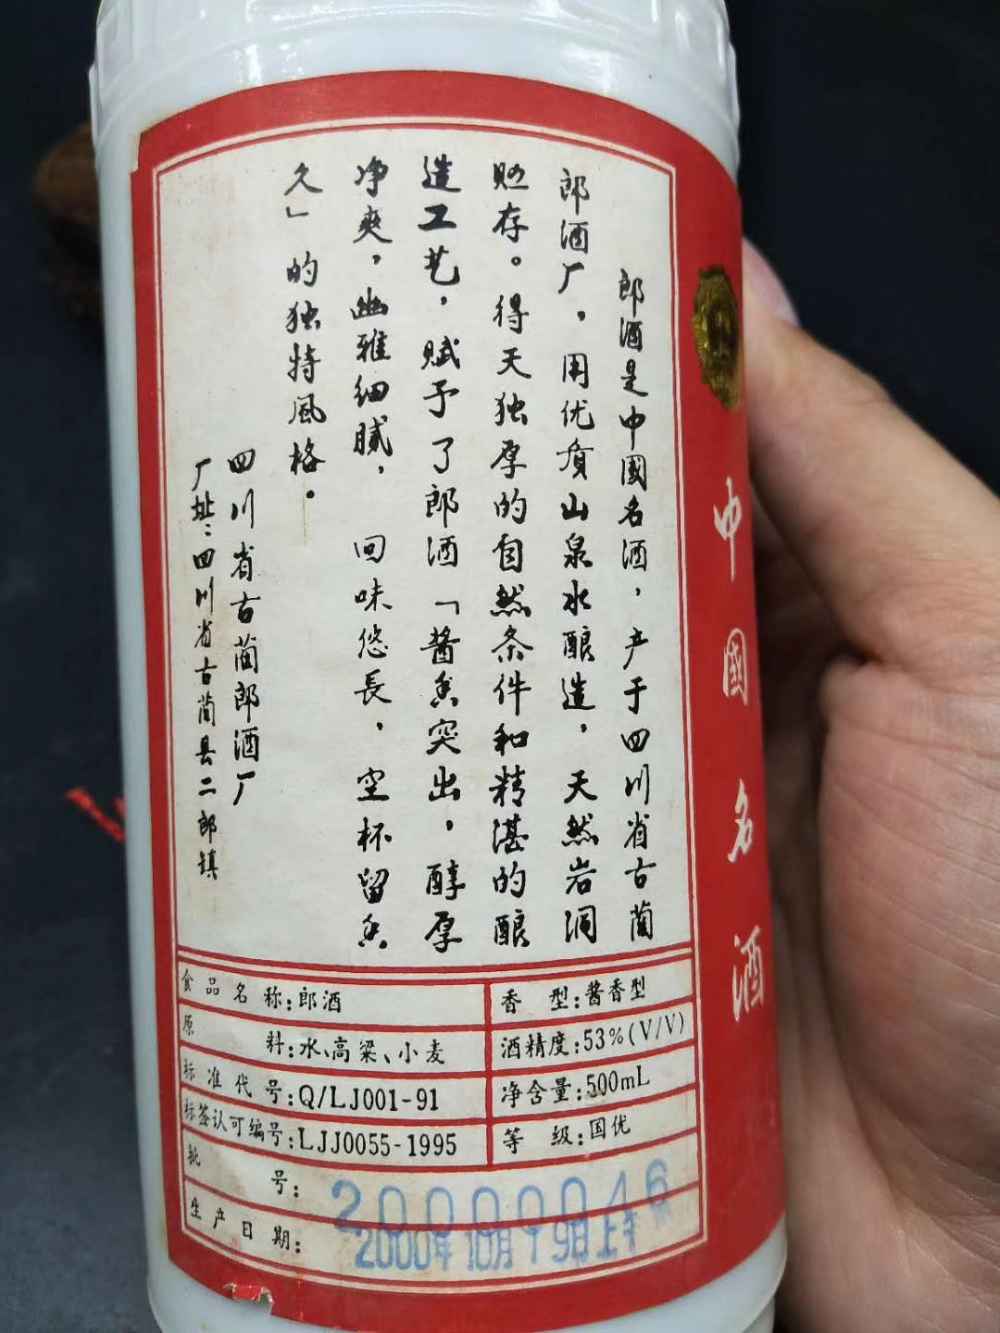 郎酒是中國名酒，产于四川省古蔺
郎酒厂，用优质山泉水酿造，天然岩洞
贮存。得天独厚的自然条件和精湛的酿
造工艺，赋予了郎酒「酱香突出，醇厚
净爽，幽雅细腻，回味悠長，空杯留香
久」的独特風格。
四川省古蔺郎酒厂
厂址：四川省古蔺县二郎镇
食品名称:郎酒
香型:酱香型
原料:水、高梁、小麦
酒精度:53%(V/V)
标准代号:Q/LJ001-91
净含量:500mL
标签认可编号:LJJ0055-1995
等级:国优
批号:20000046
生产日期:2000年10月19日上午
中國名酒